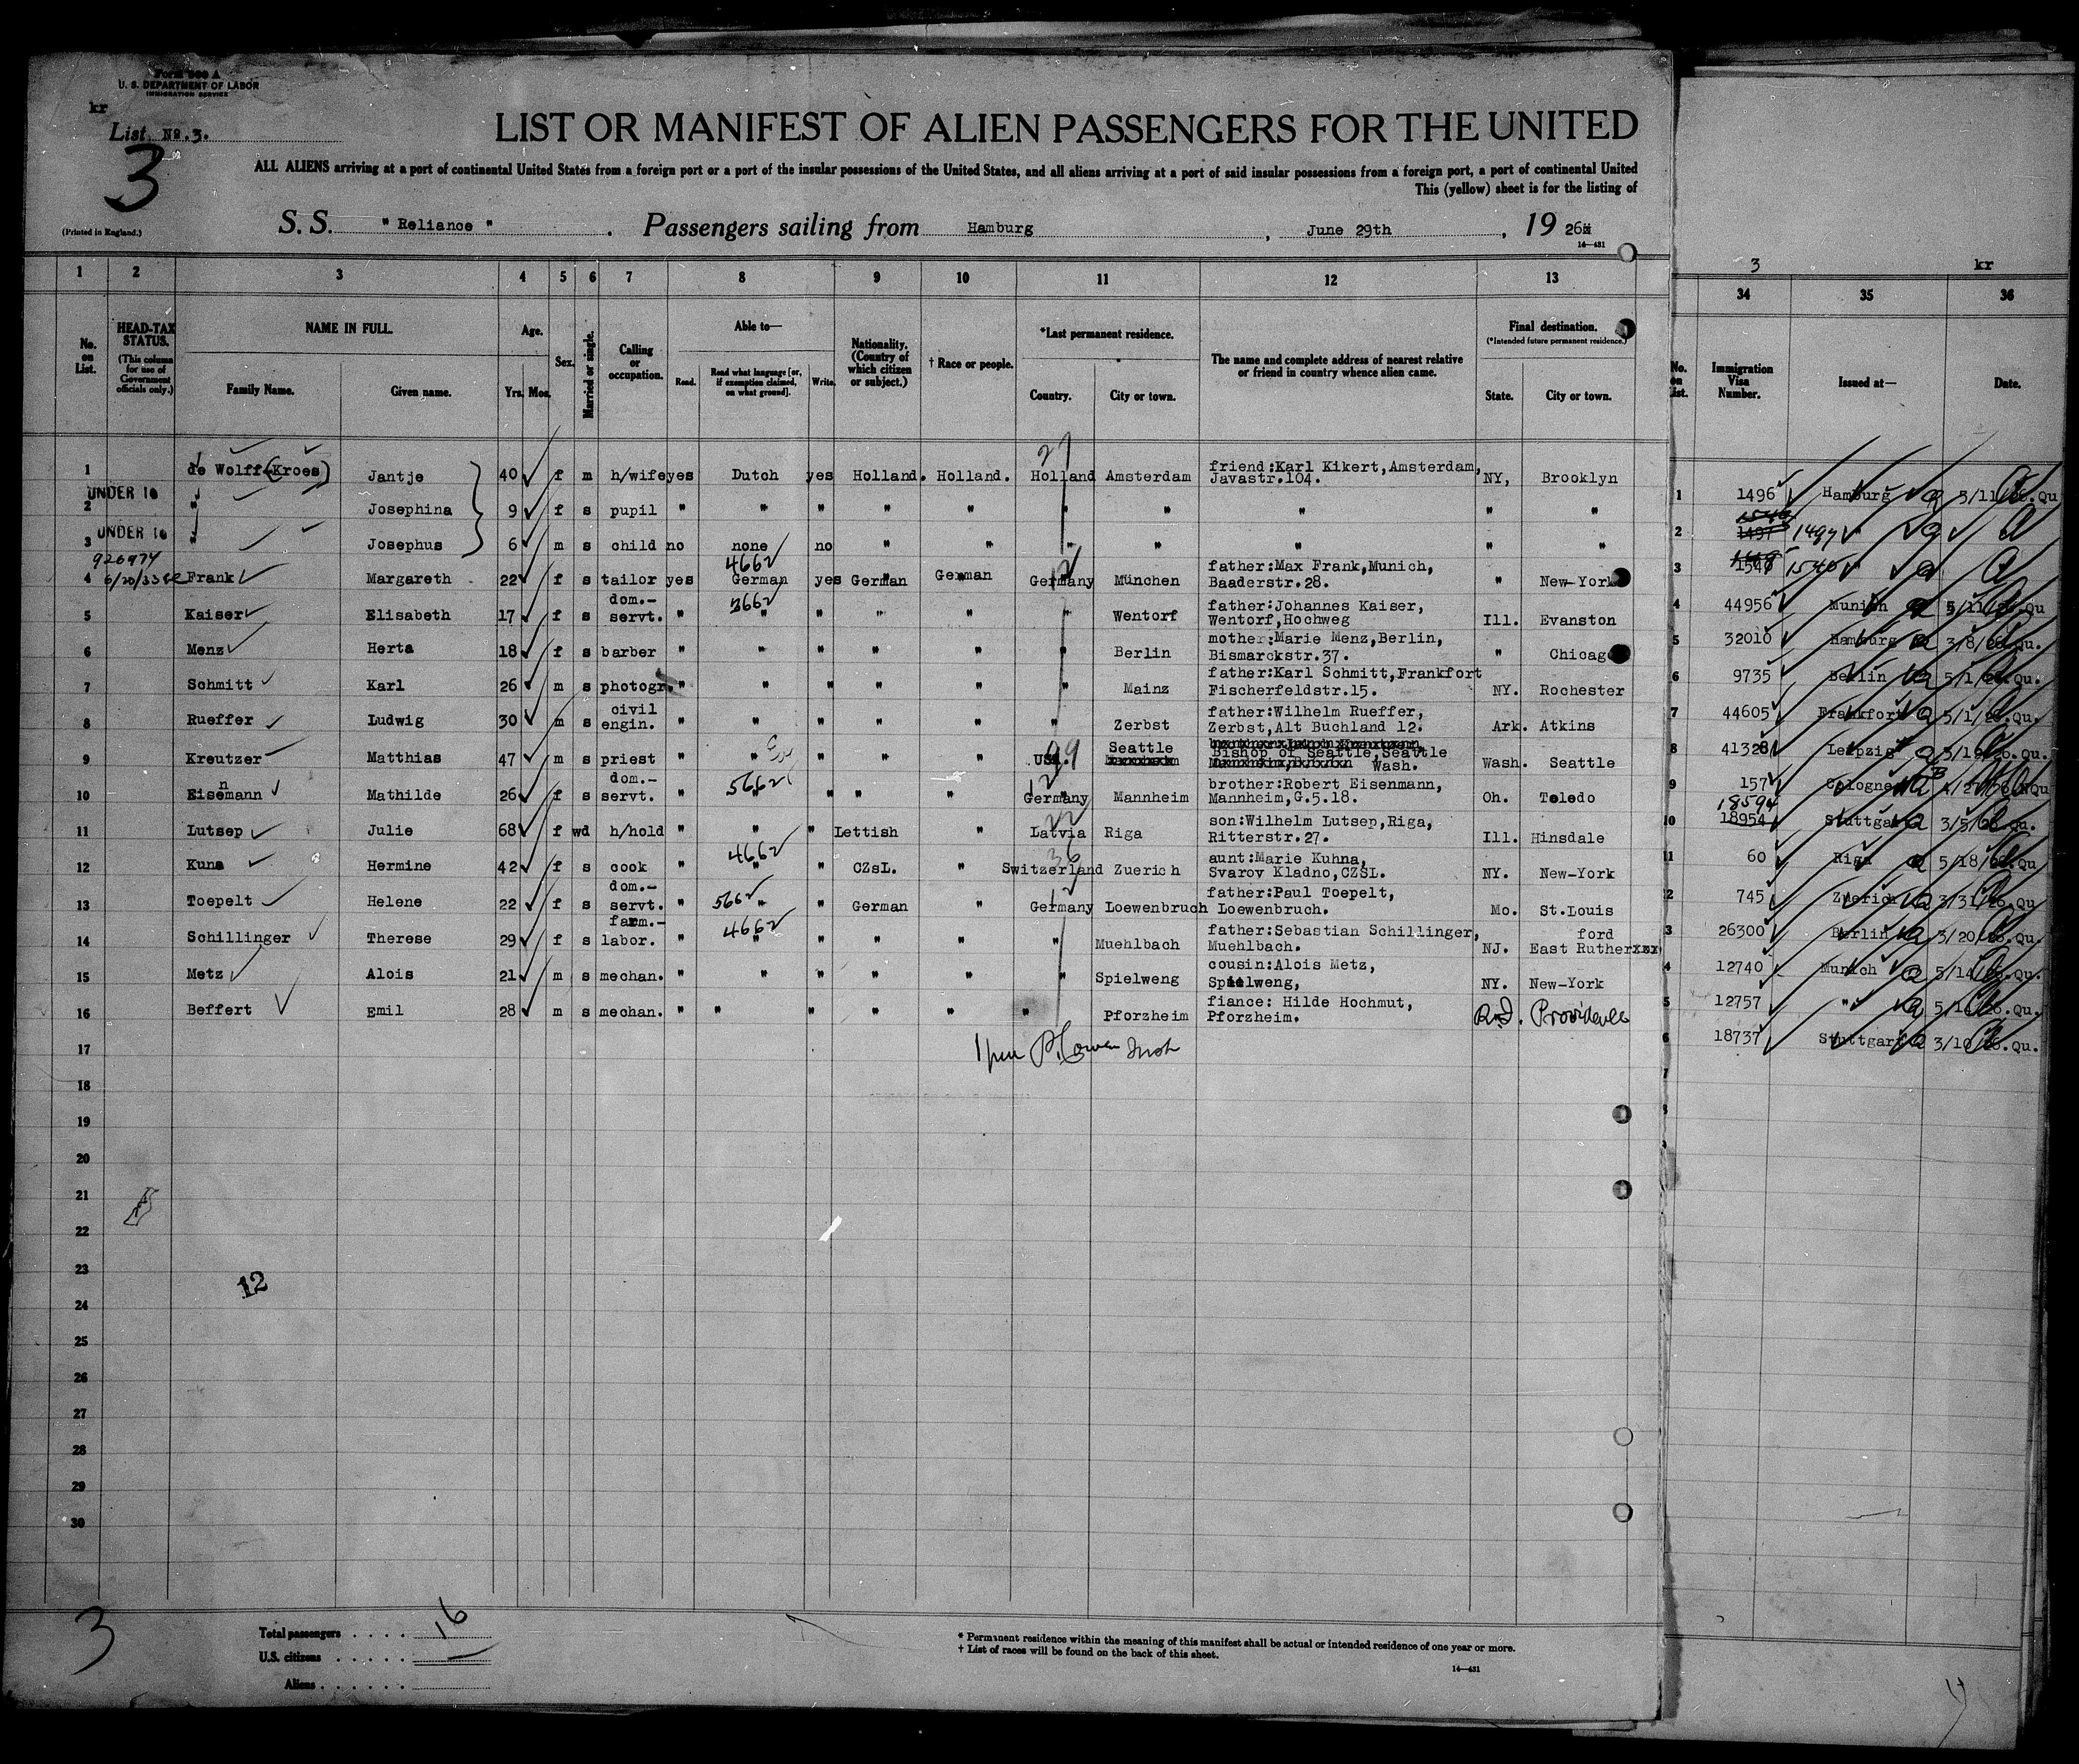 Form 500 A
U. S. DEPARTMENT OF LABOR
IMMIGRATION SERVICE
kr
List No. 3.
3
(Printed in England.)
LIST OR MANIFEST OF ALIEN PASSENGERS FOR THE UNITED
ALL ALIENS arriving at a port of continental United States from a foreign port or a port of the insular possessions of the United States, and all aliens arriving at a port of said insular possessions from a foreign port, a port of continental United
This (yellow) sheet is for the listing of
S. S. " Reliance " . Passengers sailing from Hamburg , June 29th , 19 26
14—431
3 kr
1 2 3 4 5 6 7 8 9 10 11 12 13 34 35 36
No. on List. HEAD-TAX STATUS. (This column for use of Government officials only.) NAME IN FULL. Family Name. Given name. Age. Yrs. Mos. Sex. Married or single. Calling or occupation. Able to— Read. Read what language [or, if exemption claimed, on what ground]. Write. Nationality. (Country of which citizen or subject.) † Race or people. *Last permanent residence. Country. City or town. The name and complete address of nearest relative or friend in country whence alien came. Final destination. (*Intended future permanent residence.) State. City or town. No. on List. Immigration Visa Number. Issued at— Date.
1 de Wolff (Kroes) Jantje 40 f m h/wife yes Dutch yes Holland. Holland. 27 Holland Amsterdam friend:Karl Kikert,Amsterdam, Javastr.104. NY, Brooklyn
UNDER 16 2 " Josephina 9 f s pupil " " " " " " " " " "
UNDER 16 3 " Josephus 6 m s child no none no " " " " " " "
926974 6/20/33 4 Frank Margareth 22 f s tailor yes 4662 German yes German German 12 Germany München father:Max Frank,Munich, Baaderstr.28. " New-York
5 Kaiser Elisabeth 17 f s dom.- servt. " 3662 " " " " " Wentorf father:Johannes Kaiser, Wentorf,Hochweg Ill. Evanston
6 Menz Herta 18 f s barber " " " " " " Berlin mother:Marie Menz,Berlin, Bismarckstr.37. " Chicago
7 Schmitt Karl 26 m s photogr. " " " " " " Mainz father:Karl Schmitt,Frankfort Fischerfeldstr.15. NY. Rochester
8 Rueffer Ludwig 30 m s civil engin. " " " " " " Zerbst father:Wilhelm Rueffer, Zerbst,Alt Buchland 12. Ark. Atkins
9 Kreutzer Matthias 47 m s priest " " " " " USA. 99 Seattle Bishop of Seattle,Seattle Wash. Wash. Seattle
10 Eisenmann Mathilde 26 f s dom.- servt. " 5662 " " " " 12 Germany Mannheim brother:Robert Eisenmann, Mannheim,G.5.18. Oh. Toledo
11 Lutsep Julie 68 f wd h/hold " " " Lettish " 22 Latvia Riga son:Wilhelm Lutsep,Riga, Ritterstr.27. Ill. Hinsdale
12 Kuna Hermine 42 f s cook " 4662 " " CZsL. " 36 Switzerland Zuerich aunt:Marie Kuhna, Svarov Kladno,CZSL. NY. New-York
13 Toepelt Helene 22 f s dom.- servt. " 5662 " " German " 12 Germany Loewenbruch father:Paul Toepelt, Loewenbruch. Mo. St.Louis
14 Schillinger Therese 29 f s farm.- labor. " 4662 " " " " " Muehlbach father:Sebastian Schillinger, Muehlbach. NJ. East Rutherford
15 Metz Alois 21 m s mechan. " " " " " " Spielweng cousin:Alois Metz, Spielweng, NY. New-York
16 Beffert Emil 28 m s mechan. " " " " " " Pforzheim fiance: Hilde Hochmut, Pforzheim. R.I. Providence
17
18
19
20
21
22
23
24
25
26
27
28
29
30
12
3
Total passengers . . . . 16
U.S. citizens . . . . .
Aliens . . . . . .
* Permanent residence within the meaning of this manifest shall be actual or intended residence of one year or more.
† List of races will be found on the back of this sheet.
14—431
1 1496 Hamburg 5/11/26.Qu
2 1497
3 1540
4 44956 Munich 5/11/26.Qu
5 32010 Hamburg 3/8/26.Qu.
6 9735 Berlin 5/1/26.Qu.
7 44605 Frankfort 5/1/26.Qu.
8 41328 Leipzig 5/1 26.Qu.
9 157 Cologne 4/27/26
10 18594 18954 Stuttgart 3/5/26.Qu.
11 60 Riga 5/18/26.Qu
12 745 Zuerich 3/31/26.Qu
13 26300 Berlin 3/20/26.Qu.
14 12740 Munich 5/14/26.Qu.
15 12757 " 5/14/26.Qu.
16 18737 Stuttgart 3/10/26.Qu.